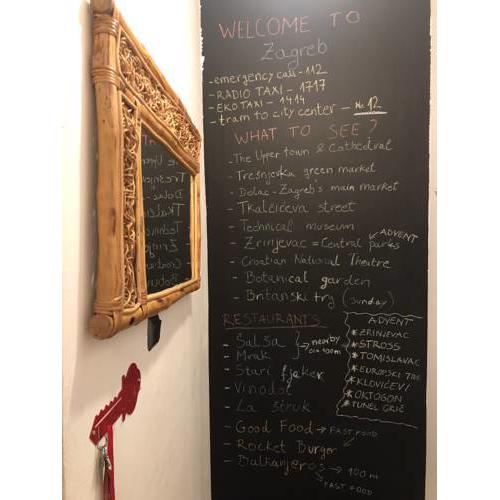 WELCOME TO
Zagreb
- emergency call - 112
- RADIO TAXI - 1717
- EKO TAXI - 1414
- tram to city center - No. 12
WHAT TO SEE?
- The Upper town & Cathedral
- Trešnjevka green market
- Dolac - Zagreb's main market
- Tkalčićeva street
- Technical museum
- Zrinjevac = Central parks
ADVENT
- Croatian National Theatre
- Botanical garden
- Britanski trg (Sunday)
RESTAURANTS
- Salsa
- Mrak
nearby
400m
- Stari fijaker
- Vinodol
- La štruk
- Good Food → FAST FOOD
- Rocket Burger
- Balkanjeros → 100 m
FAST FOOD
ADVENT
* ZRINJEVAC
* STROSS
* TOMISLAVAC
* EUROPSKI TRG
* KLOVIĆEVI
* OKTOGON
* TUNEL GRIČ